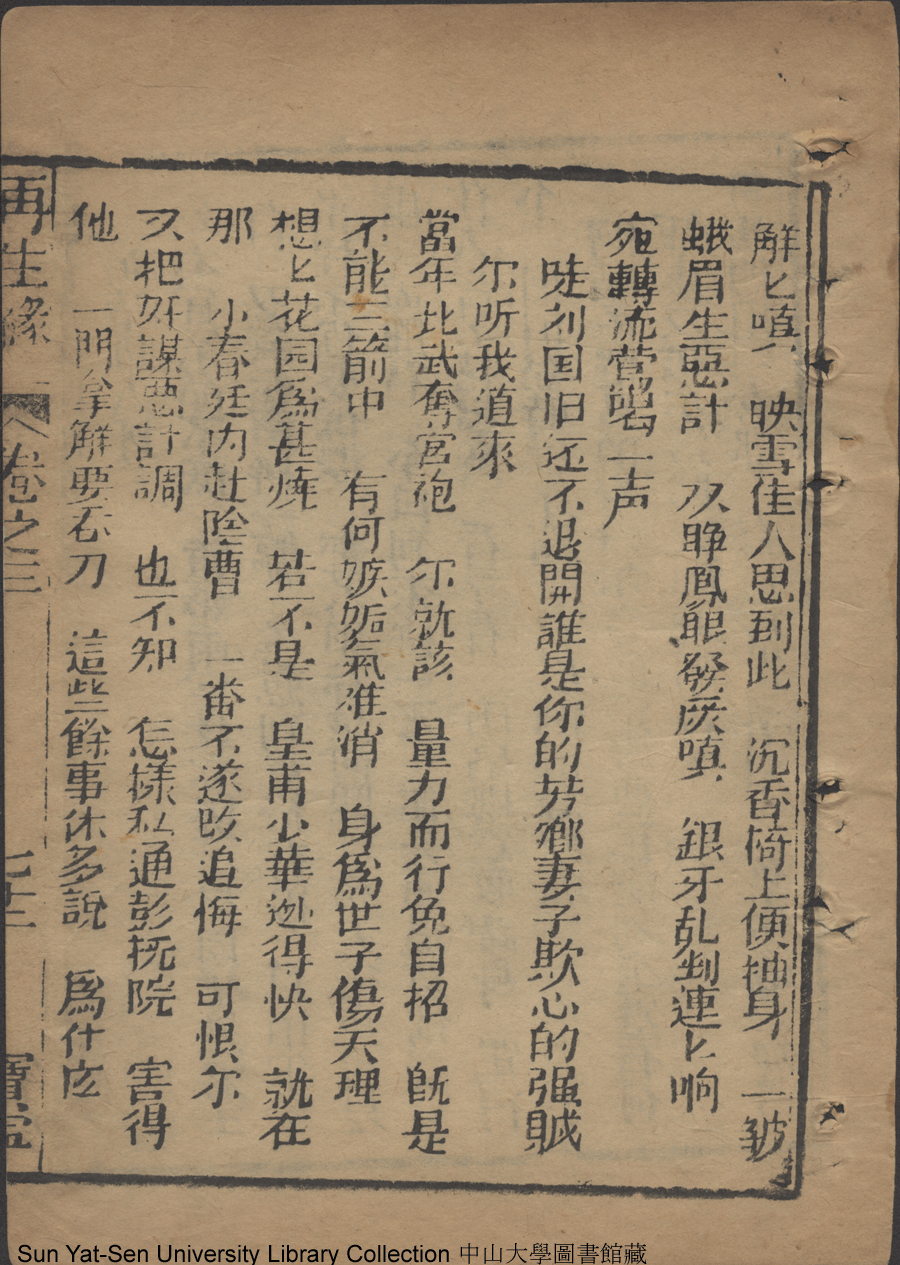 解匕嗔　映雪佳人思到此　沉香椅上便抽身　一皱
蛾眉生惡計　双睁鳳眼發戾嗔　銀牙乱剉連匕响
宛轉流鶯喝一声
哇刘国旧还不退開誰是你的芳鄉妻子欺心的强贼
尔听我道來
當年北武奪宮袍　尔就該　量力而行免自招　旣是
不能三箭中　有何嫉妬氣难消　身爲世子傷天理
想匕花园爲甚燒　若不是　皇甫少華迯得快　就在
那　小春廷内赴陰曹　一番不遂改追悔　可恨尔
又把奸謀惡計調　也不知　怎樣私通彭抚院　害得
他　一門拿觧要石刀　這些餘事休多說　爲什庅
再生緣　卷之三　七十二　寶
Sun Yat-Sen University Library Collection 中山大學圖書館藏